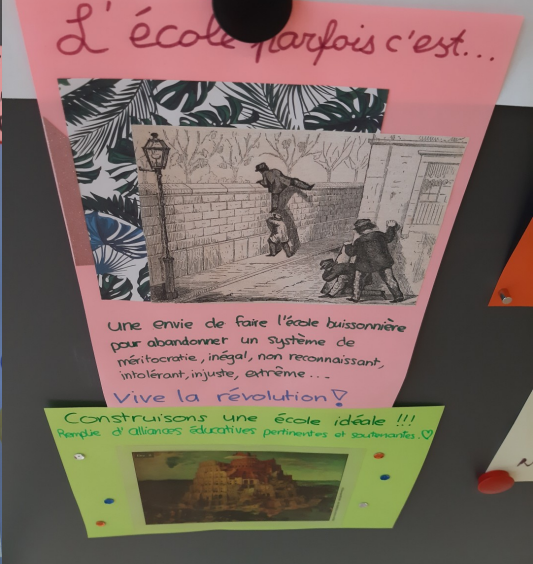 L'école parfois c'est...
une envie de faire l'école buissonnière
pour abandonner un système de
méritocratie, inégal, non reconnaissant,
intolérant, injuste, extrême...
Vive la révolution!
Construisons une école idéale !!!
Remplie d'alliances éducatives pertinentes et soutenantes.♡